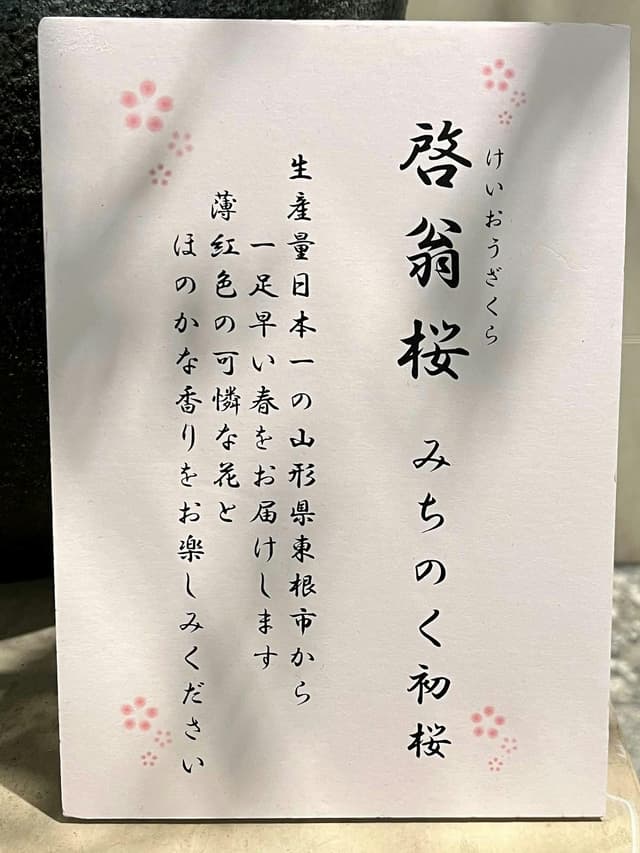 けいおうざくら
啓翁桜 みちのく初桜
生産量日本一の山形県東根市から
一足早い春をお届けします
薄紅色の可憐な花と
ほのかな香りをお楽しみください